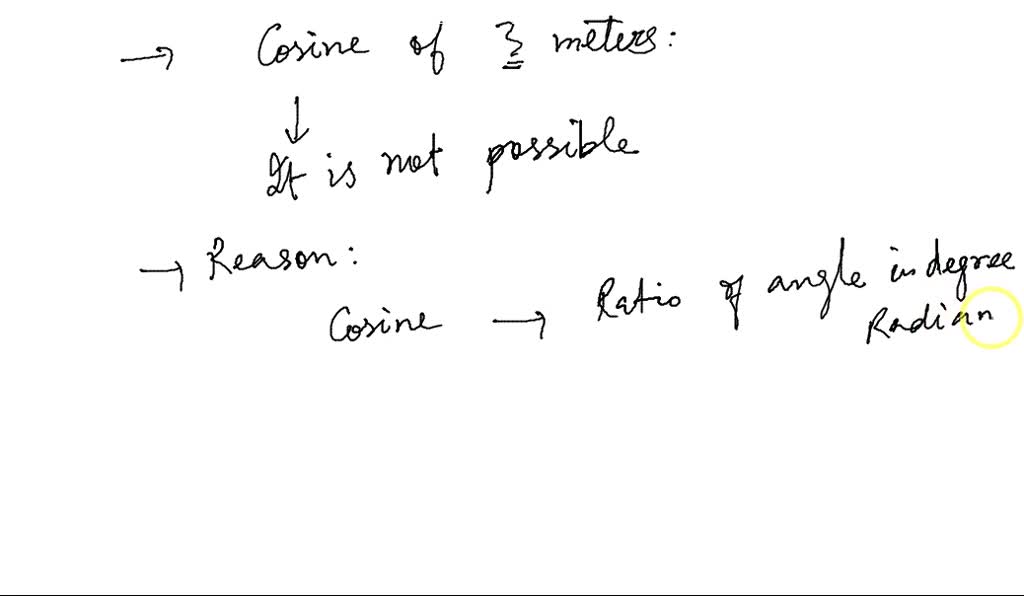 → Cosine of 3 meters:
↓
It is not possible
→ Reason:
Cosine → Ratio of angle in degree
Radian